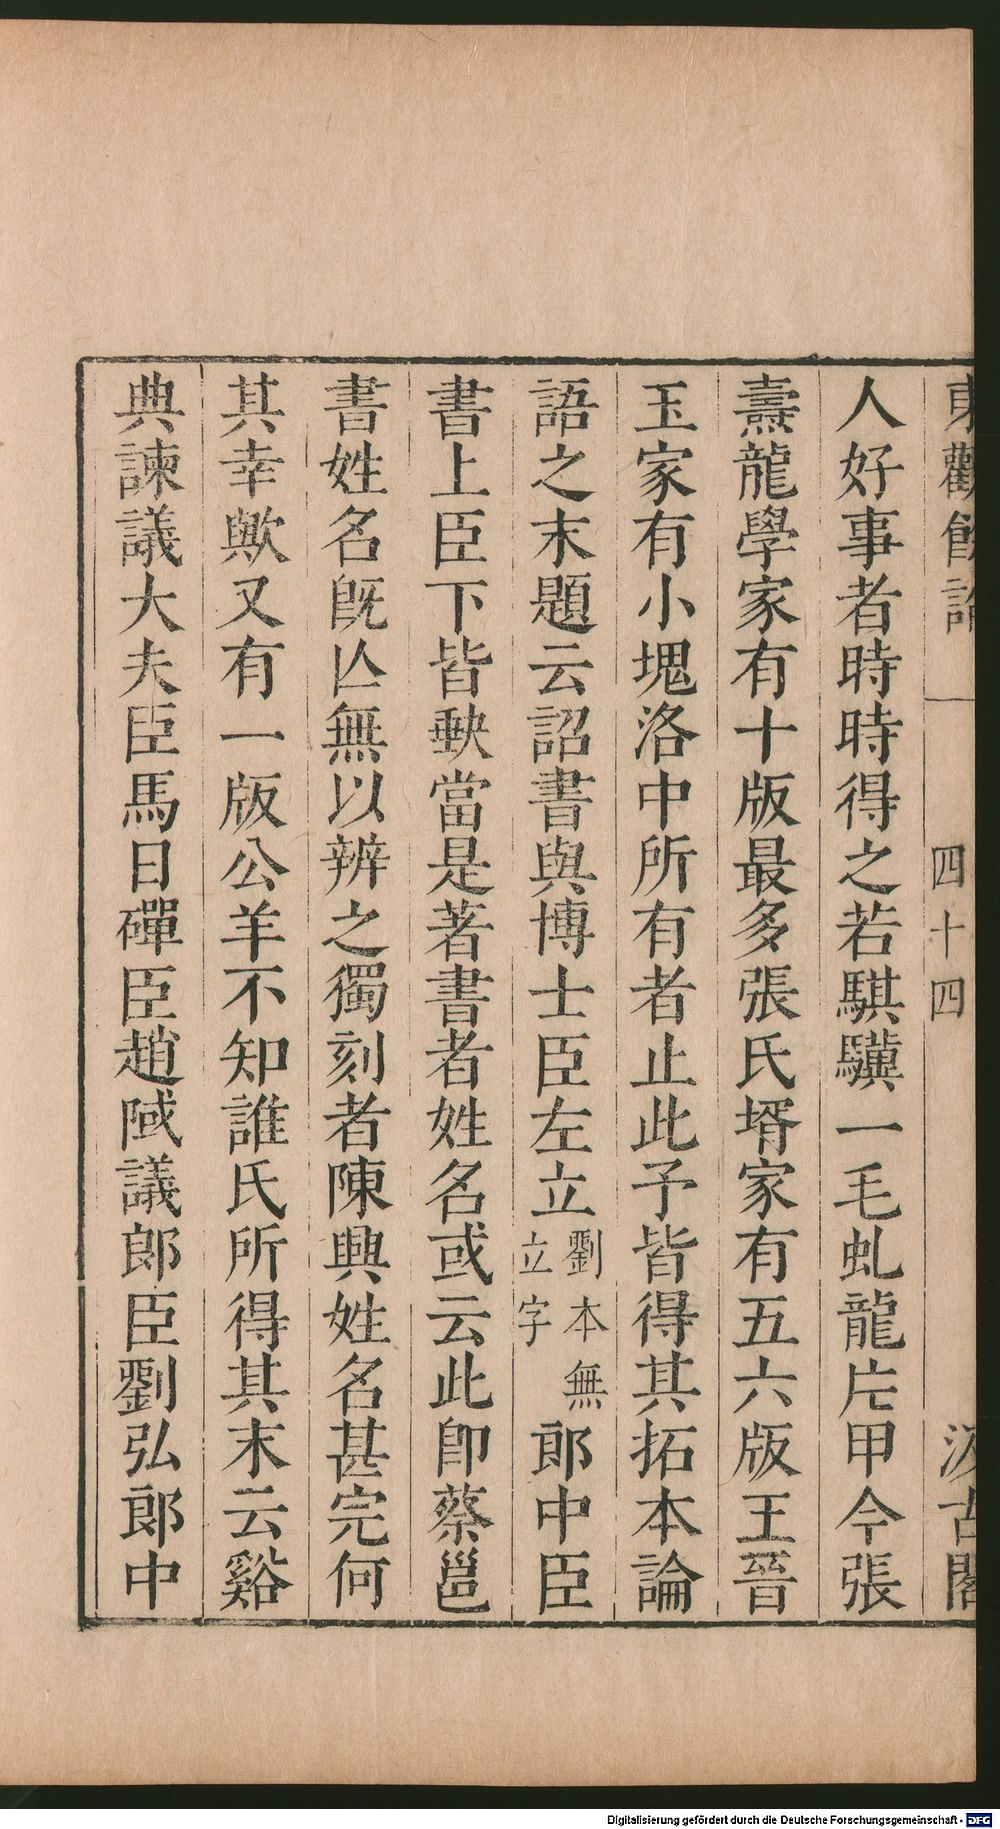 東觀餘論 四十四 汲古閣
人好事者時時得之若騏驥一毛虬龍片甲今張
燾龍學家有十版最多張氏壻家有五六版王晉
玉家有小塊洛中所有者止此予皆得其拓本論
語之末題云詔書與博士臣左立劉本無立字郎中臣
書上臣下皆缺當是著書者姓名或云此卽蔡邕
書姓名旣亾無以辨之獨刻者陳興姓名甚完何
其幸歟又有一版公羊不知誰氏所得其末云谿
典諫議大夫臣馬日磾臣趙䧕議郎臣劉弘郎中
Digitalisierung gefördert durch die Deutsche Forschungsgemeinschaft - DFG